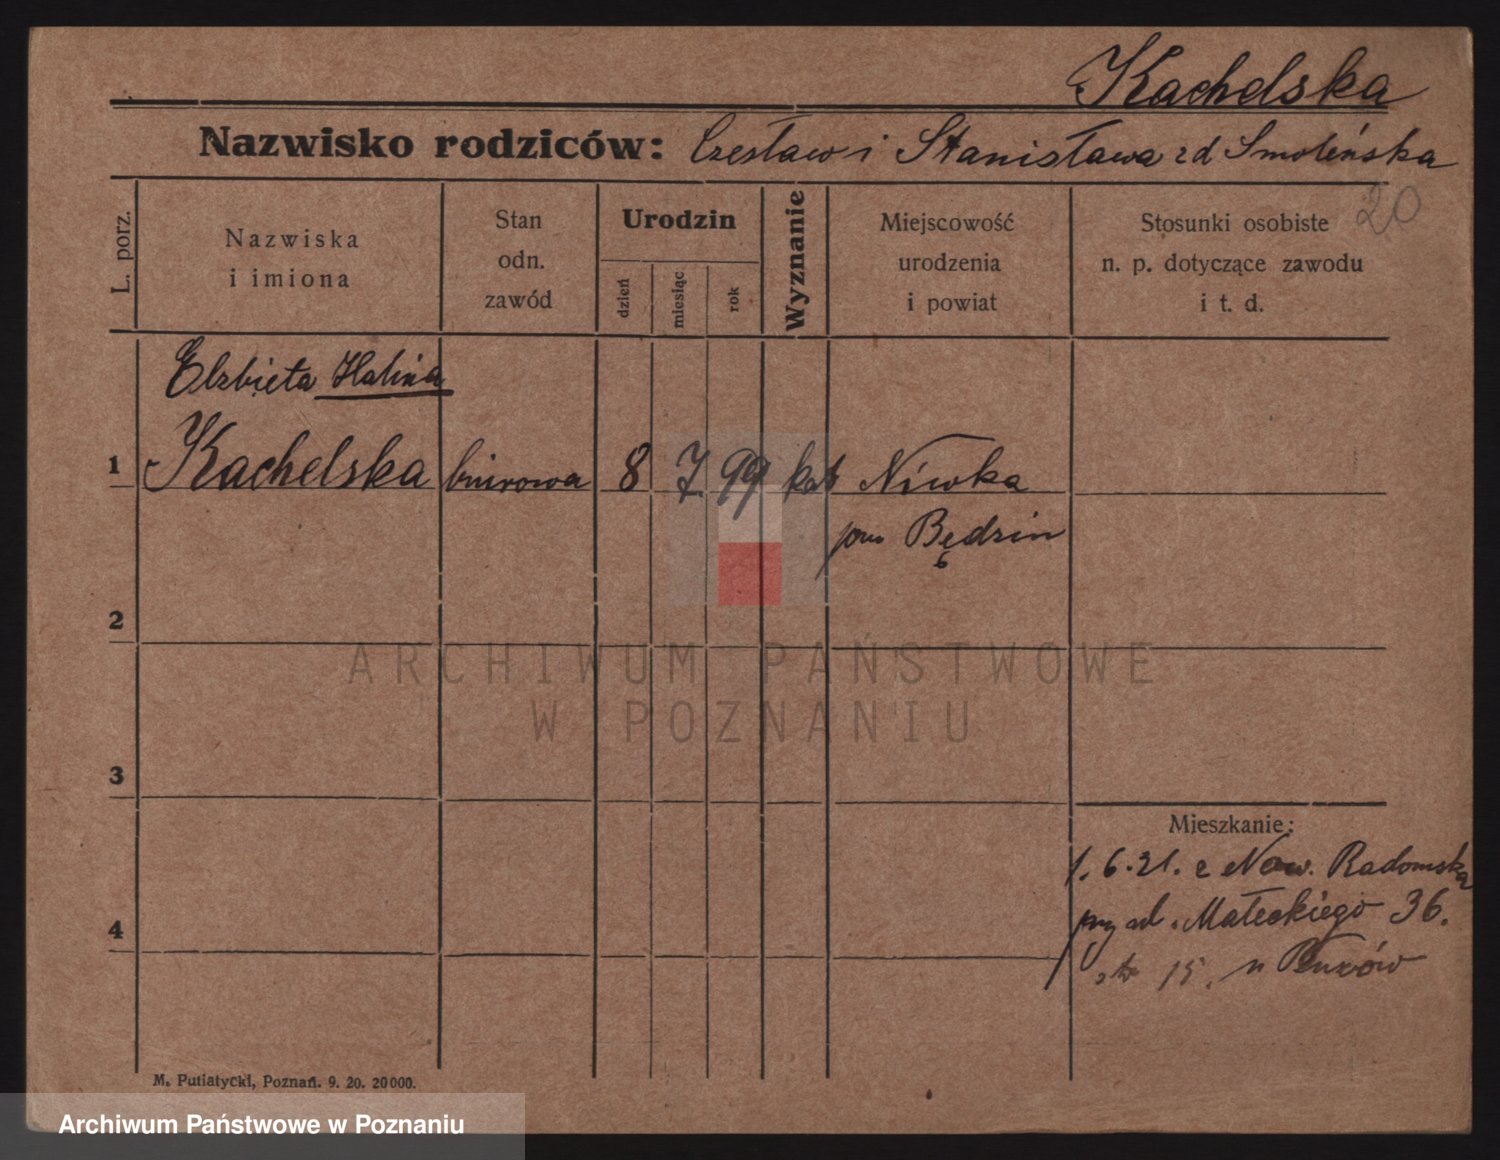 Kachelska
Nazwisko rodziców: Czesław i Stanisława zd Smoleńska
20
L. porz.
Nazwiska
i imiona
Stan
odn.
zawód
Urodzin
dzień
miesiąc
rok
Wyznanie
Miejscowość
urodzenia
i powiat
Stosunki osobiste
n. p. dotyczące zawodu
i t. d.
Elzbieta Halina
1 Kachelska biurowa 8 7 99 kat Niwka
pow Będzin
2
3
4
ARCHIWUM PAŃSTWOWE
W POZNANIU
Mieszkanie:
1.6.21. z Now. Radomska
przy ul. Małeckiego 36.
15. u
M. Putiatycki, Poznań. 9. 20. 20000.
Archiwum Państwowe w Poznaniu